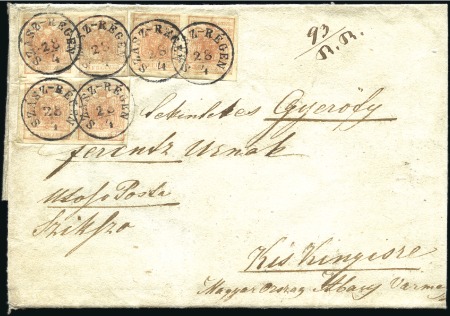 SZÁSZ-REGEN SZÁSZ-REGEN SZÁSZ-REGEN SZÁSZ-REGEN
28 28 28 28
4 4 4 4
93
N.R.
SZÁSZ-REGEN SZÁSZ-REGEN
28 28
4 4
Tekintetes Gyerőfy
Ferentz Urnak
Utolso Posta
Szikszo
Kis Kinyisre
Magyar Orszag Abauj Varmegy